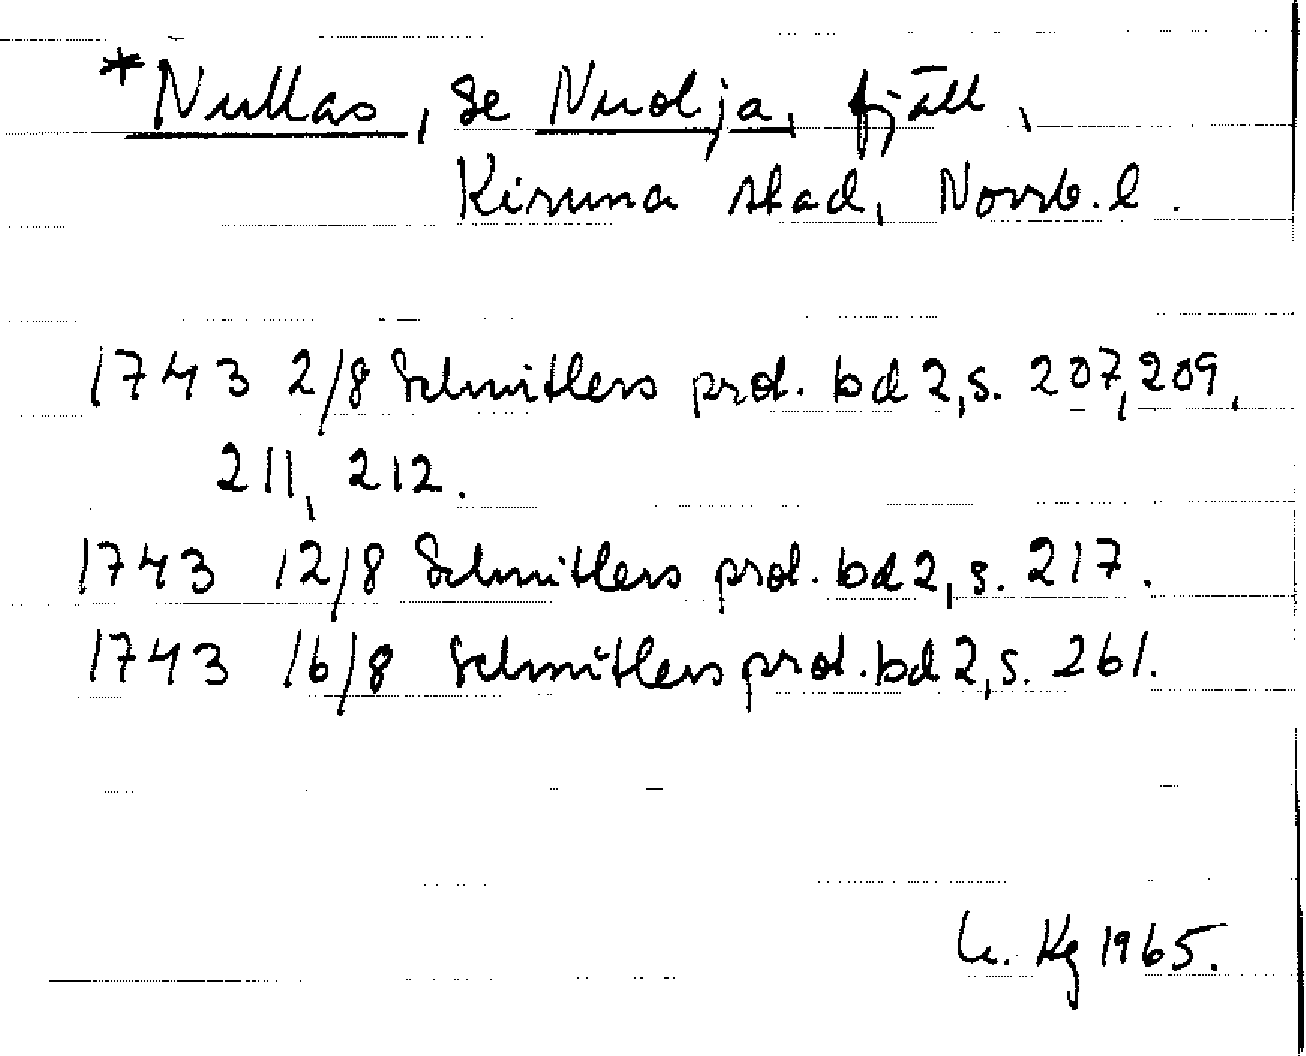 *Nullas, se Nuolja, fjäll,
Kiruna stad, Norrb. l.
1743 2/8 Schnitlers prot. bd 2, s. 207, 209,
211, 212.
1743 12/8 Schnitlers prot. bd 2, s. 217.
1743 16/8 Schnitlers prot. bd 2, s. 261.
Kg 1965.